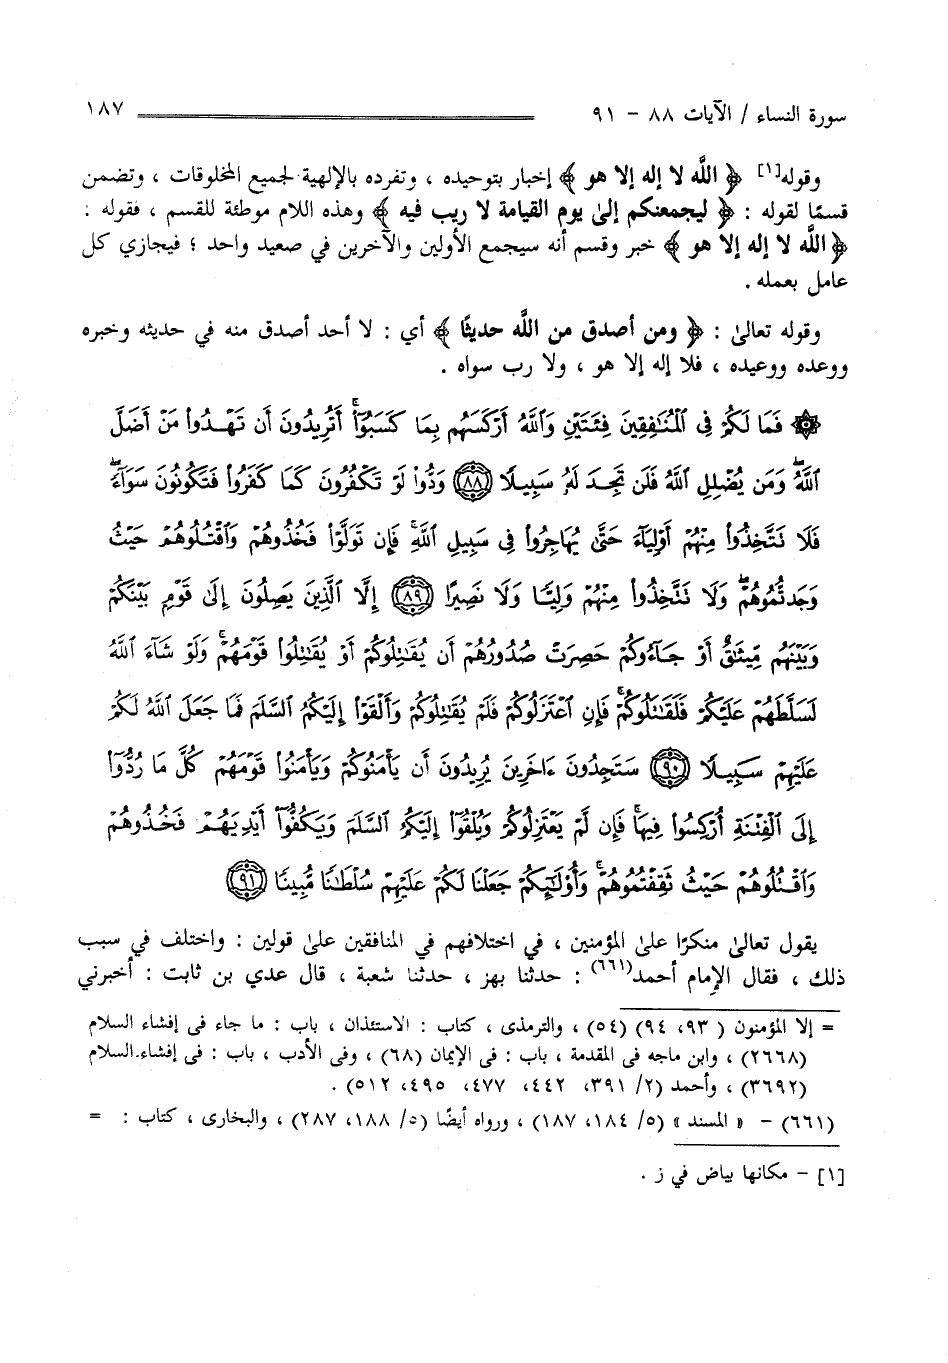 سورة النساء / الآيات ٨٨ - ٩١ ١٨٧
وقوله[١] ﴿ اللَّه لا إله إلا هو ﴾ إخبار بتوحيده ، وتفرده بالإلهية لجميع المخلوقات ، وتضمن
قسمًا لقوله : ﴿ ليجمعنكم إلىٰ يوم القيامة لا ريب فيه ﴾ وهذه اللام موطئة للقسم ، فقوله :
﴿ اللَّه لا إله إلا هو ﴾ خبر وقسم أنه سيجمع الأولين والآخرين في صعيد واحد ؛ فيجازي كل
عامل بعمله .
وقوله تعالىٰ : ﴿ ومن أصدق من اللَّه حديثًا ﴾ أي : لا أحد أصدق منه في حديثه وخبره
ووعده ووعيده ، فلا إله إلا هو ، ولا رب سواه .
۞ فَمَا لَكُمْ فِى ٱلْمُنَٰفِقِينَ فِئَتَيْنِ وَٱللَّهُ أَرْكَسَهُم بِمَا كَسَبُوٓا۟ ۚ أَتُرِيدُونَ أَن تَهْدُوا۟ مَنْ أَضَلَّ
ٱللَّهُ ۖ وَمَن يُضْلِلِ ٱللَّهُ فَلَن تَجِدَ لَهُۥ سَبِيلًا ﴿٨٨﴾ وَدُّوا۟ لَوْ تَكْفُرُونَ كَمَا كَفَرُوا۟ فَتَكُونُونَ سَوَآءً ۖ
فَلَا تَتَّخِذُوا۟ مِنْهُمْ أَوْلِيَآءَ حَتَّىٰ يُهَاجِرُوا۟ فِى سَبِيلِ ٱللَّهِ ۚ فَإِن تَوَلَّوْا۟ فَخُذُوهُمْ وَٱقْتُلُوهُمْ حَيْثُ
وَجَدتُّمُوهُمْ ۖ وَلَا تَتَّخِذُوا۟ مِنْهُمْ وَلِيًّا وَلَا نَصِيرًا ﴿٨٩﴾ إِلَّا ٱلَّذِينَ يَصِلُونَ إِلَىٰ قَوْمٍۭ بَيْنَكُمْ
وَبَيْنَهُم مِّيثَٰقٌ أَوْ جَآءُوكُمْ حَصِرَتْ صُدُورُهُمْ أَن يُقَٰتِلُوكُمْ أَوْ يُقَٰتِلُوا۟ قَوْمَهُمْ ۚ وَلَوْ شَآءَ ٱللَّهُ
لَسَلَّطَهُمْ عَلَيْكُمْ فَلَقَٰتَلُوكُمْ ۚ فَإِنِ ٱعْتَزَلُوكُمْ فَلَمْ يُقَٰتِلُوكُمْ وَأَلْقَوْا۟ إِلَيْكُمُ ٱلسَّلَمَ فَمَا جَعَلَ ٱللَّهُ لَكُمْ
عَلَيْهِمْ سَبِيلًا ﴿٩٠﴾ سَتَجِدُونَ ءَاخَرِينَ يُرِيدُونَ أَن يَأْمَنُوكُمْ وَيَأْمَنُوا۟ قَوْمَهُمْ كُلَّ مَا رُدُّوٓا۟
إِلَى ٱلْفِتْنَةِ أُرْكِسُوا۟ فِيهَا ۚ فَإِن لَّمْ يَعْتَزِلُوكُمْ وَيُلْقُوٓا۟ إِلَيْكُمُ ٱلسَّلَمَ وَيَكُفُّوٓا۟ أَيْدِيَهُمْ فَخُذُوهُمْ
وَٱقْتُلُوهُمْ حَيْثُ ثَقِفْتُمُوهُمْ ۚ وَأُو۟لَٰٓئِكُمْ جَعَلْنَا لَكُمْ عَلَيْهِمْ سُلْطَٰنًا مُّبِينًا ﴿٩١﴾
يقول تعالىٰ منكرًا علىٰ المؤمنين ، في اختلافهم في المنافقين علىٰ قولين : واختلف في سبب
ذلك ، فقال الإمام أحمد(٦٦١) : حدثنا بهز ، حدثنا شعبة ، قال عدي بن ثابت : أخبرني
= إلا المؤمنون ( ٩٣، ٩٤) (٥٤) ، والترمذى ، كتاب : الاستئذان ، باب : ما جاء فى إفشاء السلام
(٢٦٦٨) ، وابن ماجه فى المقدمة ، باب : فى الإيمان (٦٨) ، وفى الأدب ، باب : فى إفشاء السلام
(٣٦٩٢) ، وأحمد (٢/ ٣٩١، ٤٤٢، ٤٧٧، ٤٩٥، ٥١٢) .
(٦٦١) - « المسند » (٥/ ١٨٤، ١٨٧) ، ورواه أيضًا (٥/ ١٨٨، ٢٨٧) ، والبخارى ، كتاب : =
[١] - مكانها بياض في ز .